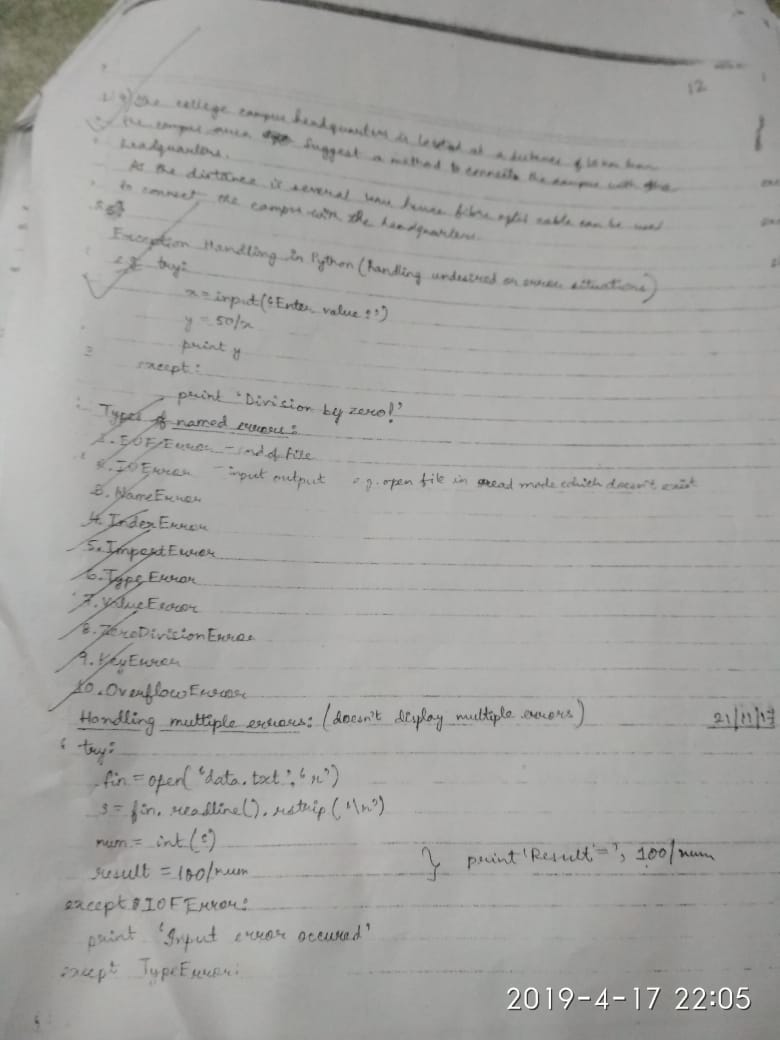 12
The college campus headquarters is located at a distance of 10 km from
the campus area. Suggest a method to connect the campus with the
headquarters.
As the distance is several kms hence fibre optic cable can be used
to connect the campus with the headquarters.
Exception Handling in Python (handling undesired or error situations)
try:
x = input('Enter value:')
y = 50/x
print y
except:
print 'Division by zero!'
Types of named errors:
1. EOFError - end of file
2. IOError - input output e.g. open file in read mode which doesn't exist
3. NameError
4. IndexError
5. ImportError
6. TypeError
7. ValueError
8. ZeroDivisionError
9. KeyError
10. OverflowError
Handling multiple errors: (doesn't display multiple errors) 21/11/17
try:
fin = open('data.txt','r')
s = fin.readline().rstrip('\n')
num = int(s)
result = 100/num } print 'Result'=', 100/num
except IOFError:
print 'Input error occured'
except TypeError:
2019-4-17 22:05